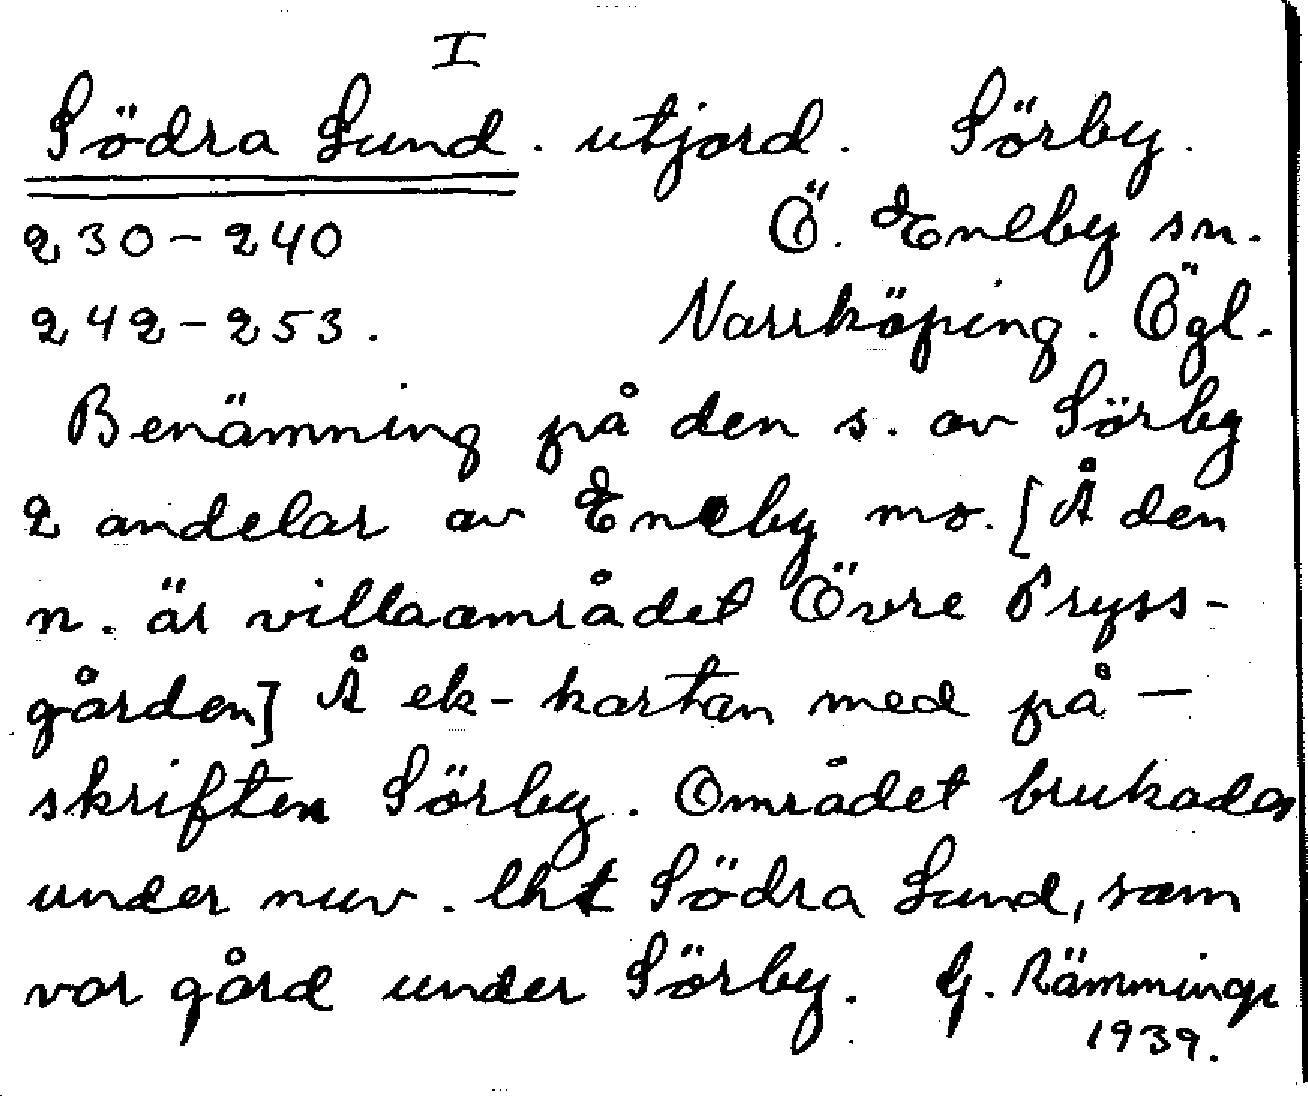 I
Södra Lund. utjord. Sörby.
230-240 Ö. Eneby sn.
242-253. Norrköping. Ögl.
Benämning på den s. av Sörby
2 andelar av Eneby mo. [Å den
n. är villaområdet Övre Pryss-
gården] Å ek-kartan med på-
skriften Sörby. Området brukades
under nuv. lht Södra Lund, som
var gård under Sörby. G. Rämminge
1939.